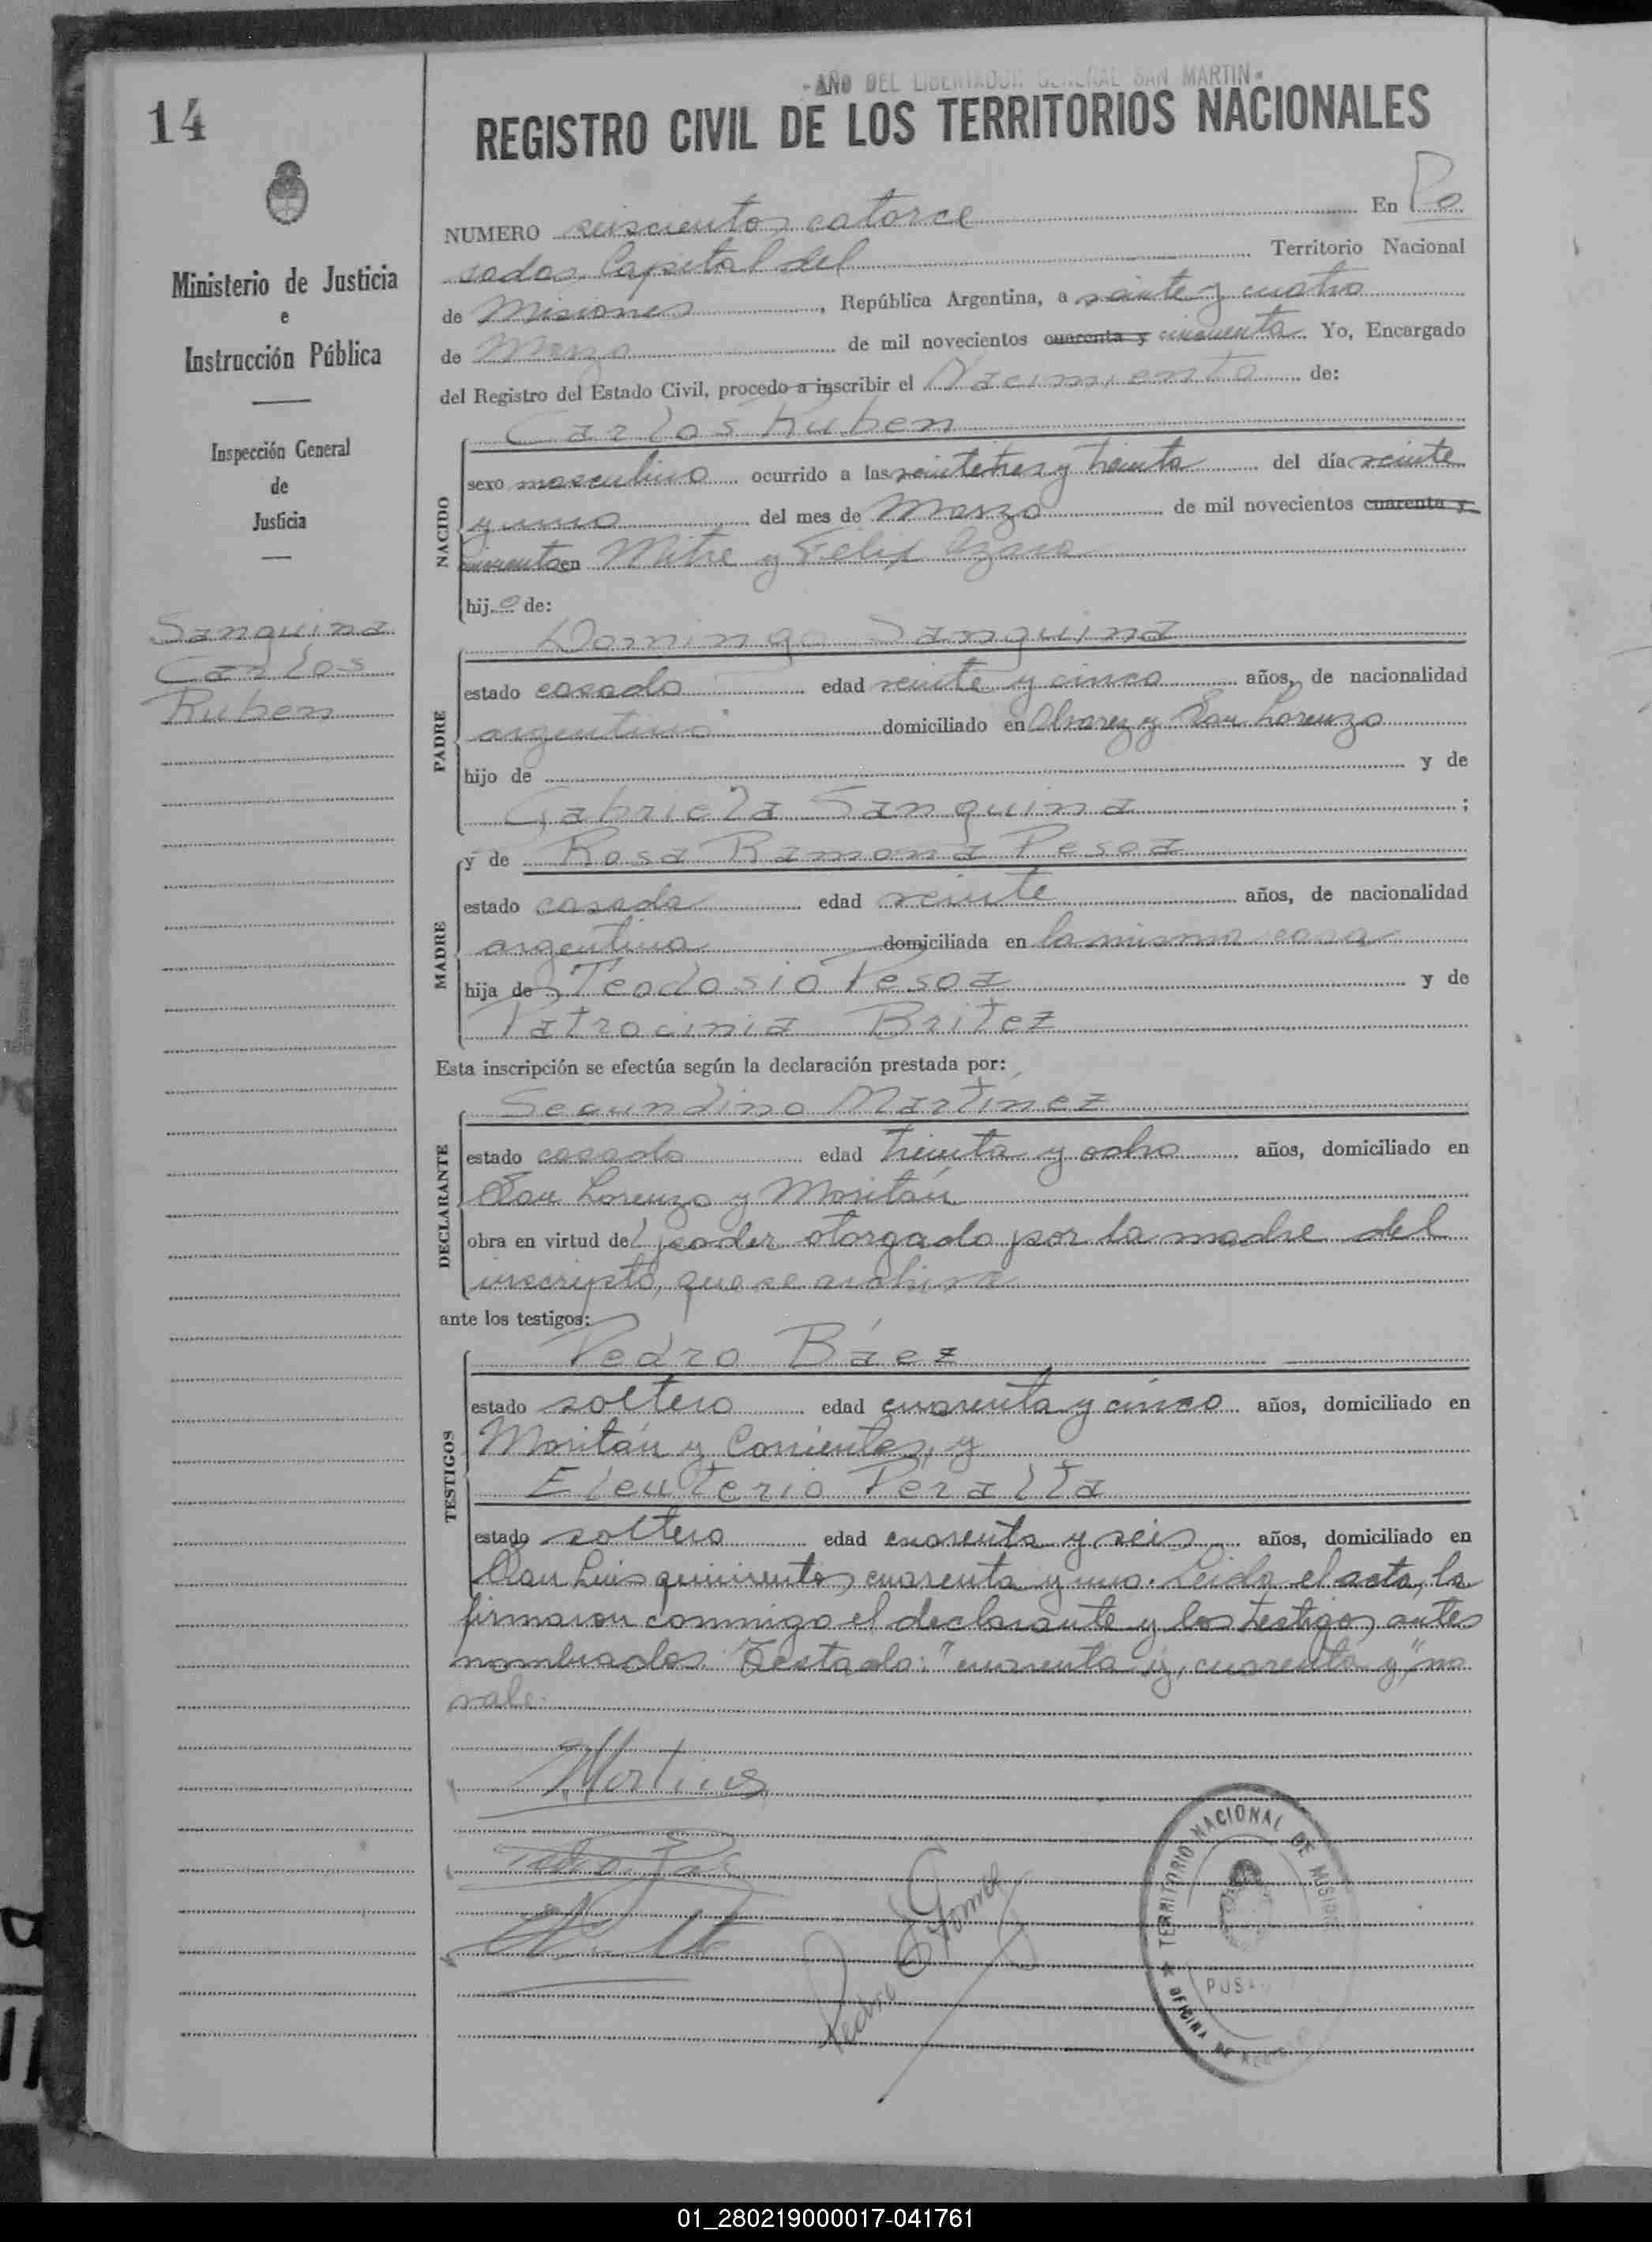 - AÑO DEL LIBERTADOR GENERAL SAN MARTIN -
14
REGISTRO CIVIL DE LOS TERRITORIOS NACIONALES
Ministerio de Justicia
e
Instrucción Pública
Inspección General
de
Justicia
Sanguina
Carlos
Ruben
NUMERO seiscientos catorce En Po
sadas Capital del Territorio Nacional
de Misiones, República Argentina, a veinte y cuatro
de Marzo de mil novecientos cuarenta y cincuenta Yo, Encargado
del Registro del Estado Civil, procedo a inscribir el Nacimiento de:
Carlos Ruben
NACIDO
sexo masculino ocurrido a las veintetres y treinta del día veinte
y uno del mes de Marzo de mil novecientos cuarenta y
cincuenta en Mitre y Felix Azara
hijo de:
Domingo Sanguina
PADRE
estado casado edad veinte y cinco años, de nacionalidad
argentino domiciliado en Alvarez y San Lorenzo
hijo de y de
Gabriela Sanguina ;
y de Rosa Ramona Pesoa
MADRE
estado casada edad veinte años, de nacionalidad
argentina domiciliada en la misma casa
hija de Teodosio Pesoa y de
Patrocinia Britez
Esta inscripción se efectúa según la declaración prestada por:
Secundino Martinez
DECLARANTE
estado casado edad treinta y ocho años, domiciliado en
San Lorenzo y Moritán
obra en virtud del poder otorgado por la madre del
inscripto, que se archiva
ante los testigos:
Pedro Báez
TESTIGOS
estado soltero edad cuarenta y cinco años, domiciliado en
Moritán y Corrientes, y
Eleuterio Peralta
estado soltero edad cuarenta y seis años, domiciliado en
San Luis quinientos cuarenta y uno. Leida el acta, la
firmaron conmigo el declarante y los testigos antes
nombrados. Testado: "cuarenta y, cuarenta y," no
vale.
TERRITORIO NACIONAL DE MISIONES
OFICINA DE